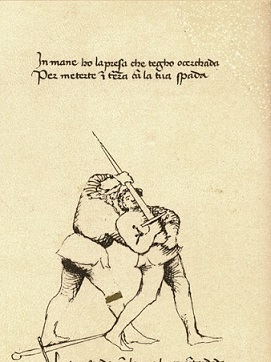 In mane ho la presa che tegho o cerchada
Per meterte i terra cũ la tua spada